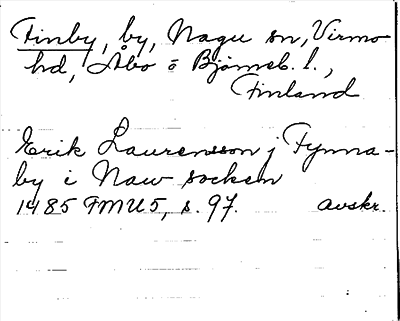 Finby, by, Nagu sn, Virmo
hd, Åbo o Bjömeb. l.,
Finland
Erik Laurensson j Fynna-
by i Naw socken
1485 FMU5, s. 97. avskr.